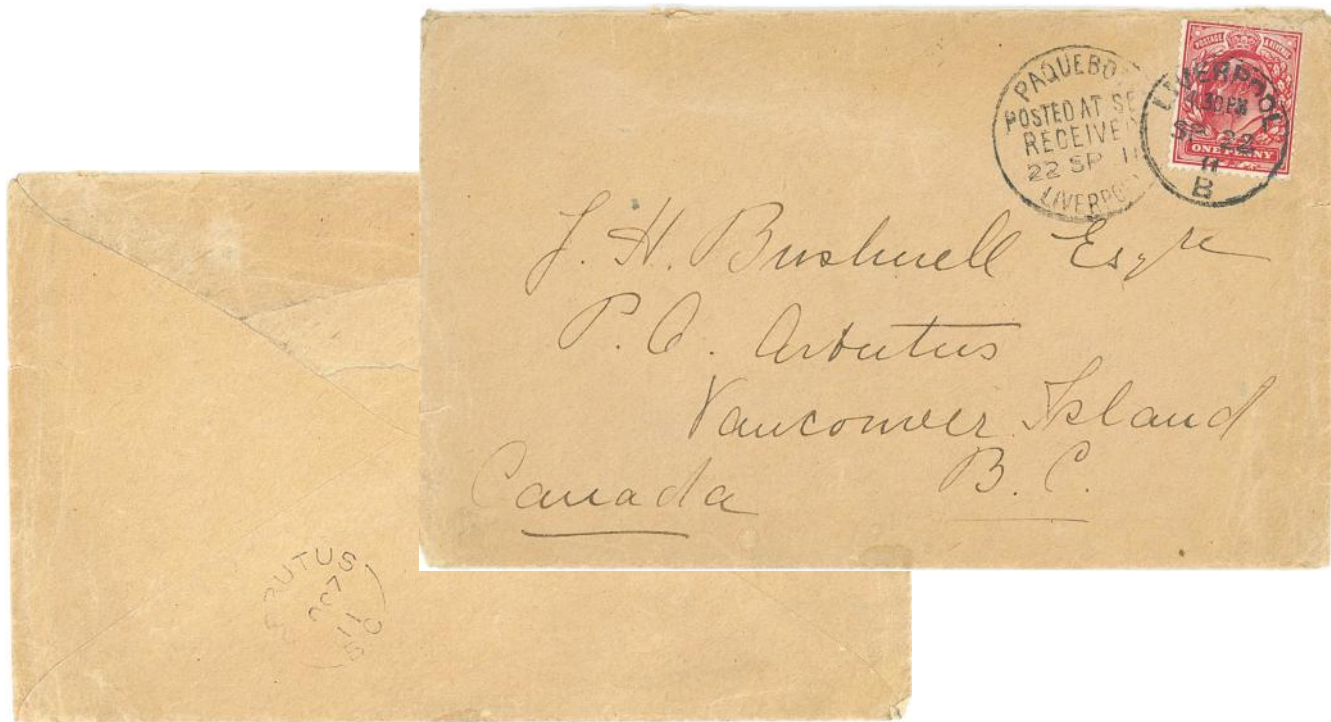 PAQUEBO
POSTED AT SE
RECEIVED
22 SP 11
LIVERPO
LIVERPOOL
1.30 PM
SP 22
11
B
POSTAGE & REVENUE
ONE PENNY
J. H. Bushnell Esqre
P.O. Arbutus
Vancouver Island
B.C.
Canada
RBUTUS
OC 7
11
B C